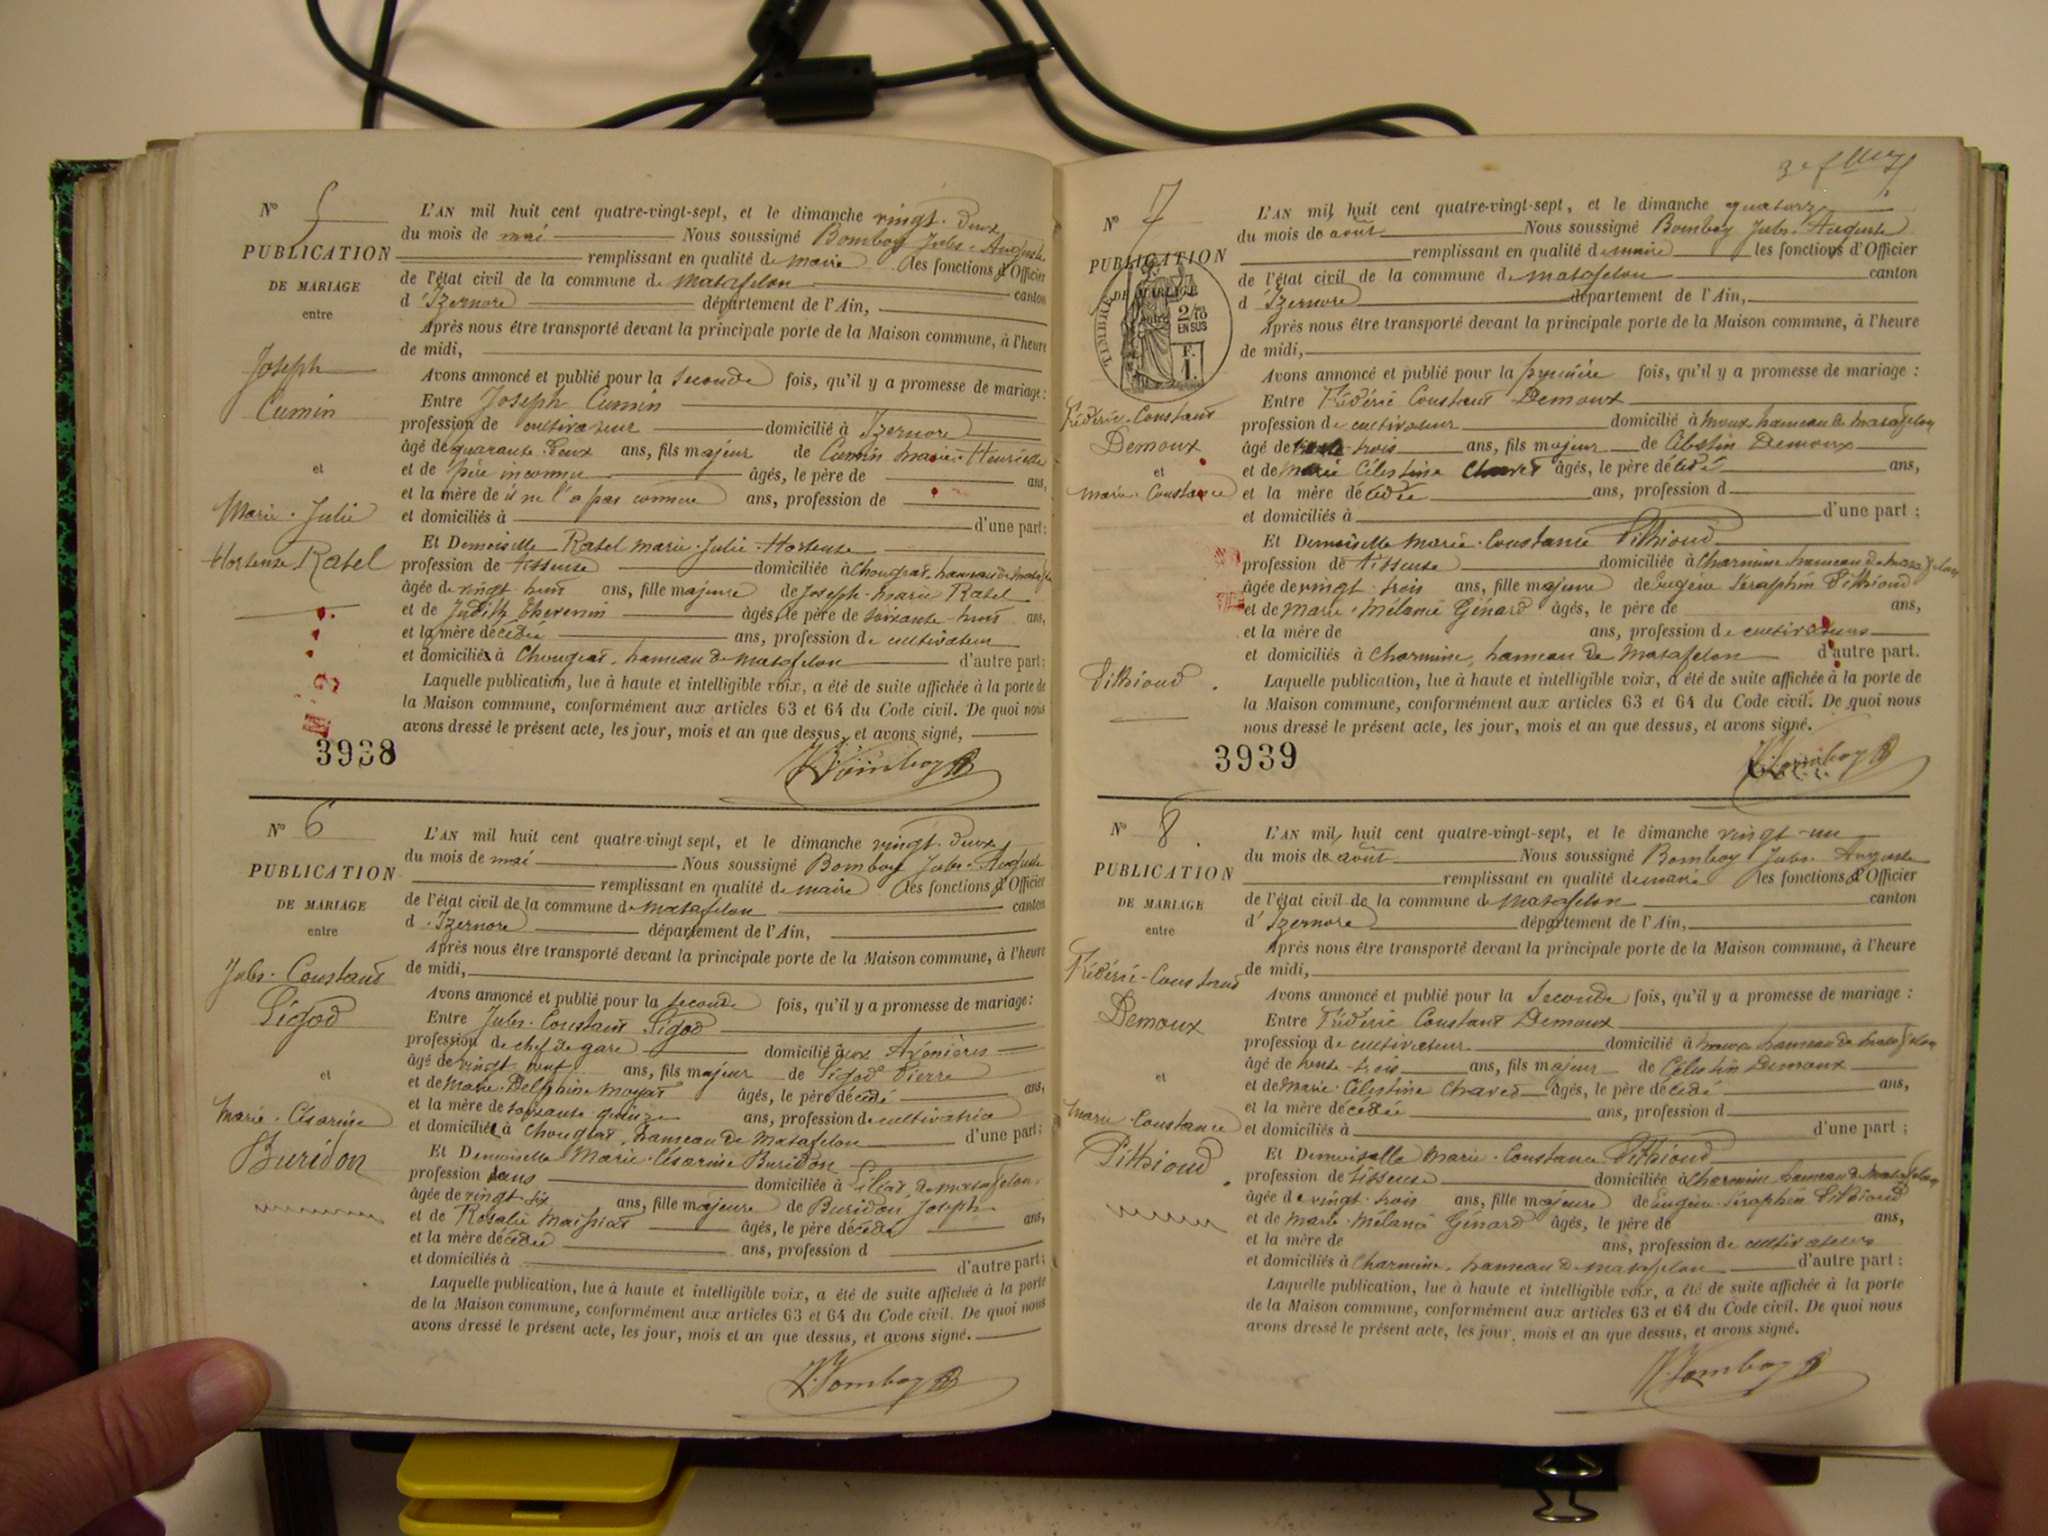 N° 5
PUBLICATION
DE MARIAGE
entre
Joseph
Cumin
et
Marie-Julie
Hortense Ratel
3938
L'AN mil huit cent quatre-vingt-sept, et le dimanche vingt-deux
du mois de mai Nous soussigné Bomboy Jules-Auguste
remplissant en qualité de maire les fonctions d'Officier
de l'état civil de la commune de Matafelon canton
d'Izernore département de l'Ain,
Après nous être transporté devant la principale porte de la Maison commune, à l'heure
de midi,
Avons annoncé et publié pour la seconde fois, qu'il y a promesse de mariage :
Entre Joseph Cumin
profession de cultivateur domicilié à Izernore
âgé de quarante deux ans, fils majeur de Cumin Marie-Henriette
et de père inconnu âgés, le père de ans,
et la mère de il ne l'a pas connue ans, profession de
et domiciliés à d'une part :
Et Demoiselle Ratel Marie-Julie-Hortense
profession de tisseuse domiciliée à Chougeat, hameau de Matafelon
âgée de vingt huit ans, fille majeure de Joseph-Marie Ratel
et de Judith Thevenin âgés, le père de soixante-huit ans,
et la mère décédée ans, profession de cultivateur
et domiciliés à Chougeat, hameau de Matafelon d'autre part :
Laquelle publication, lue à haute et intelligible voix, a été de suite affichée à la porte de
la Maison commune, conformément aux articles 63 et 64 du Code civil. De quoi nous
avons dressé le présent acte, les jour, mois et an que dessus, et avons signé,
Bomboy
N° 6
PUBLICATION
DE MARIAGE
entre
Jules-Constant
Sigod
et
Marie-Césarine
Buridon
L'AN mil huit cent quatre-vingt sept, et le dimanche vingt-deux
du mois de mai Nous soussigné Bomboy Jules-Auguste
remplissant en qualité de maire les fonctions d'Officier
de l'état civil de la commune de Matafelon canton
d'Izernore département de l'Ain,
Après nous être transporté devant la principale porte de la Maison commune, à l'heure
de midi,
Avons annoncé et publié pour la seconde fois, qu'il y a promesse de mariage :
Entre Jules-Constant Sigod
profession de chef de gare domicilié aux Avenières
âgé de vingt neuf ans, fils majeur de Sigod Pierre
et de Marie-Delphine Moyat âgés, le père décédé ans,
et la mère de soixante quinze ans, profession de cultivatrice
et domiciliée à Chougeat, hameau de Matafelon d'une part :
Et Demoiselle Marie-Césarine Buridon
profession sans domiciliée à de Matafelon
âgée de vingt six ans, fille majeure de Buridon Joseph
et de Rosalie âgés, le père décédé ans,
et la mère décédée ans, profession d
et domiciliés à d'autre part :
Laquelle publication, lue à haute et intelligible voix, a été de suite affichée à la porte
de la Maison commune, conformément aux articles 63 et 64 du Code civil. De quoi nous
avons dressé le présent acte, les jour, mois et an que dessus, et avons signé.
Bomboy
N° 7
PUBLICATION
DE MARIAGE
entre
TIMBRE
2/10
EN SUS
F.
1.
Frédéric-Constant
Demoux
et
Marie-Constance
Pithioud
3939
L'AN mil huit cent quatre-vingt-sept, et le dimanche quatorze
du mois de août Nous soussigné Bomboy Jules-Auguste
remplissant en qualité de maire les fonctions d'Officier
de l'état civil de la commune de Matafelon canton
d'Izernore département de l'Ain,
Après nous être transporté devant la principale porte de la Maison commune, à l'heure
de midi,
Avons annoncé et publié pour la première fois, qu'il y a promesse de mariage :
Entre Frédéric Constant Demoux
profession de cultivateur domicilié à hameau de Matafelon
âgé de trente-trois ans, fils majeur de Célestin Demoux
et de Marie Célestine Chavet âgés, le père décédé ans,
et la mère décédée ans, profession d
et domiciliés à d'une part :
Et Demoiselle Marie-Constance Pithioud
profession de tisseuse domiciliée à Charmine hameau de Matafelon
âgée de vingt-trois ans, fille majeure de Eugène Séraphin Pithioud
et de Marie-Mélanie Génard âgés, le père de ans,
et la mère de ans, profession de cultivateurs
et domiciliés à Charmine, hameau de Matafelon d'autre part.
Laquelle publication, lue à haute et intelligible voix, a été de suite affichée à la porte de
la Maison commune, conformément aux articles 63 et 64 du Code civil. De quoi nous
nous dressé le présent acte, les jour, mois et an que dessus, et avons signé.
Bomboy
N° 8
PUBLICATION
DE MARIAGE
entre
Frédéric-Constant
Demoux
et
Marie-Constance
Pithioud
L'AN mil huit cent quatre-vingt-sept, et le dimanche vingt-un
du mois de août Nous soussigné Bomboy Jules-Auguste
remplissant en qualité de maire les fonctions d'Officier
de l'état civil de la commune de Matafelon canton
d'Izernore département de l'Ain,
Après nous être transporté devant la principale porte de la Maison commune, à l'heure
de midi,
Avons annoncé et publié pour la seconde fois, qu'il y a promesse de mariage :
Entre Frédéric Constant Demoux
profession de cultivateur domicilié à hameau de Matafelon
âgé de trente-trois ans, fils majeur de Célestin Demoux
et de Marie-Célestine Chavet âgés, le père décédé ans,
et la mère décédée ans, profession d
et domiciliés à d'une part :
Et Demoiselle Marie-Constance Pithioud
profession de tisseuse domiciliée à Charmine hameau de Matafelon
âgée de vingt-trois ans, fille majeure de Eugène-Séraphin Pithioud
et de Marie-Mélanie Génard âgés, le père de ans,
et la mère de ans, profession de cultivateurs
et domiciliés à Charmine, hameau de Matafelon d'autre part :
Laquelle publication, lue à haute et intelligible voix, a été de suite affichée à la porte
de la Maison commune, conformément aux articles 63 et 64 du Code civil. De quoi nous
avons dressé le présent acte, les jour, mois et an que dessus, et avons signé.
Bomboy